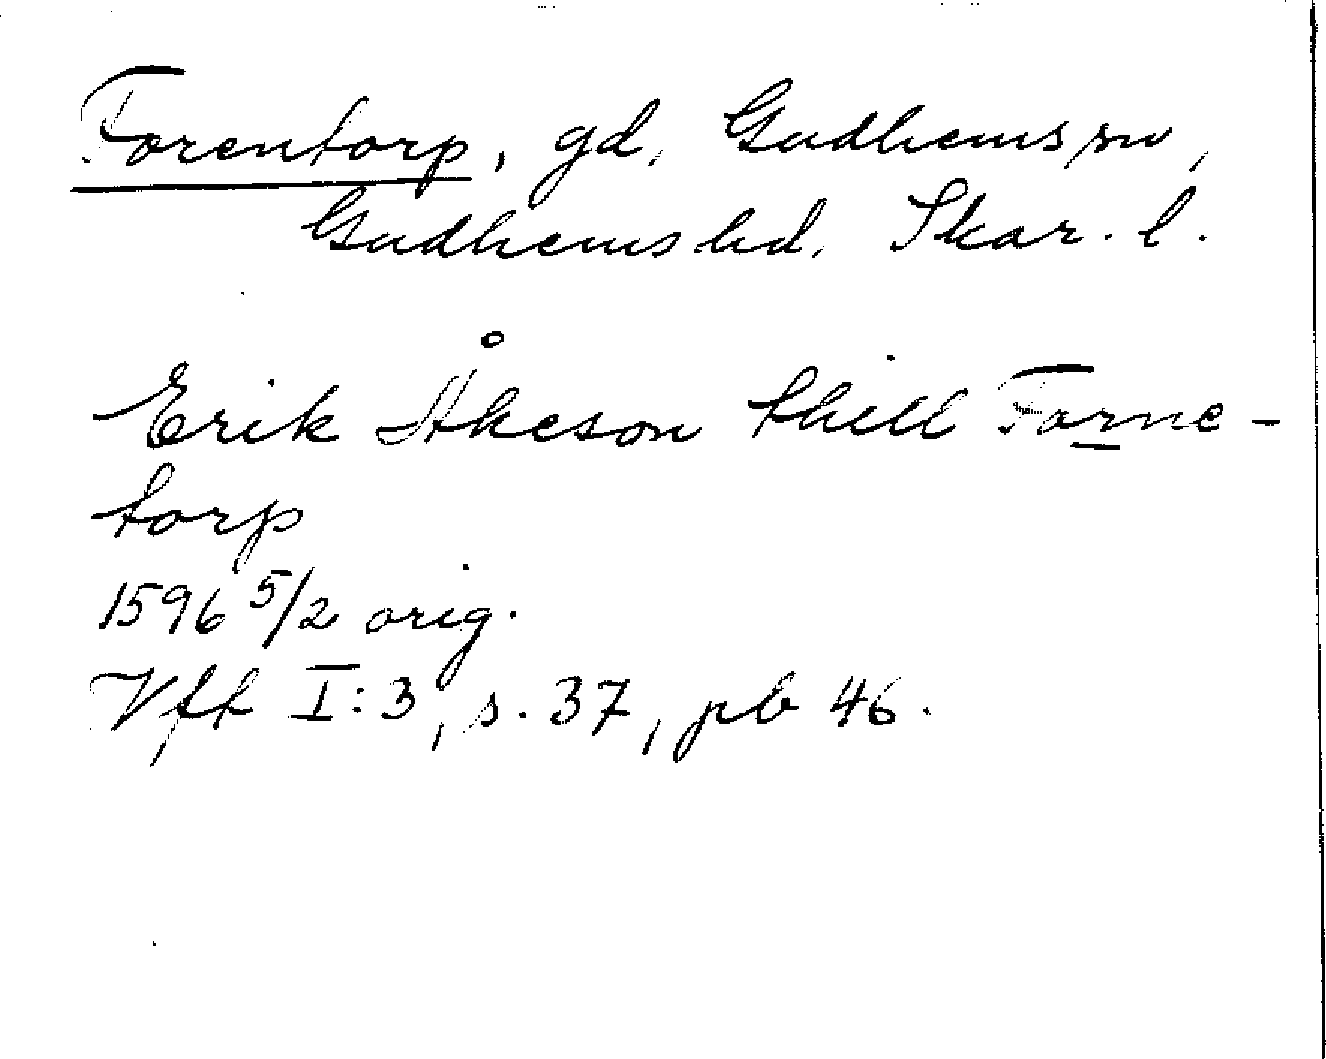 Torentorp, gd, Gudhems sn,
Gudhems hd, Skar. l.
Erik Åkeson thill Torne-
torp
1596 5/2 orig.
Vft I:3, s. 37, pb 46.